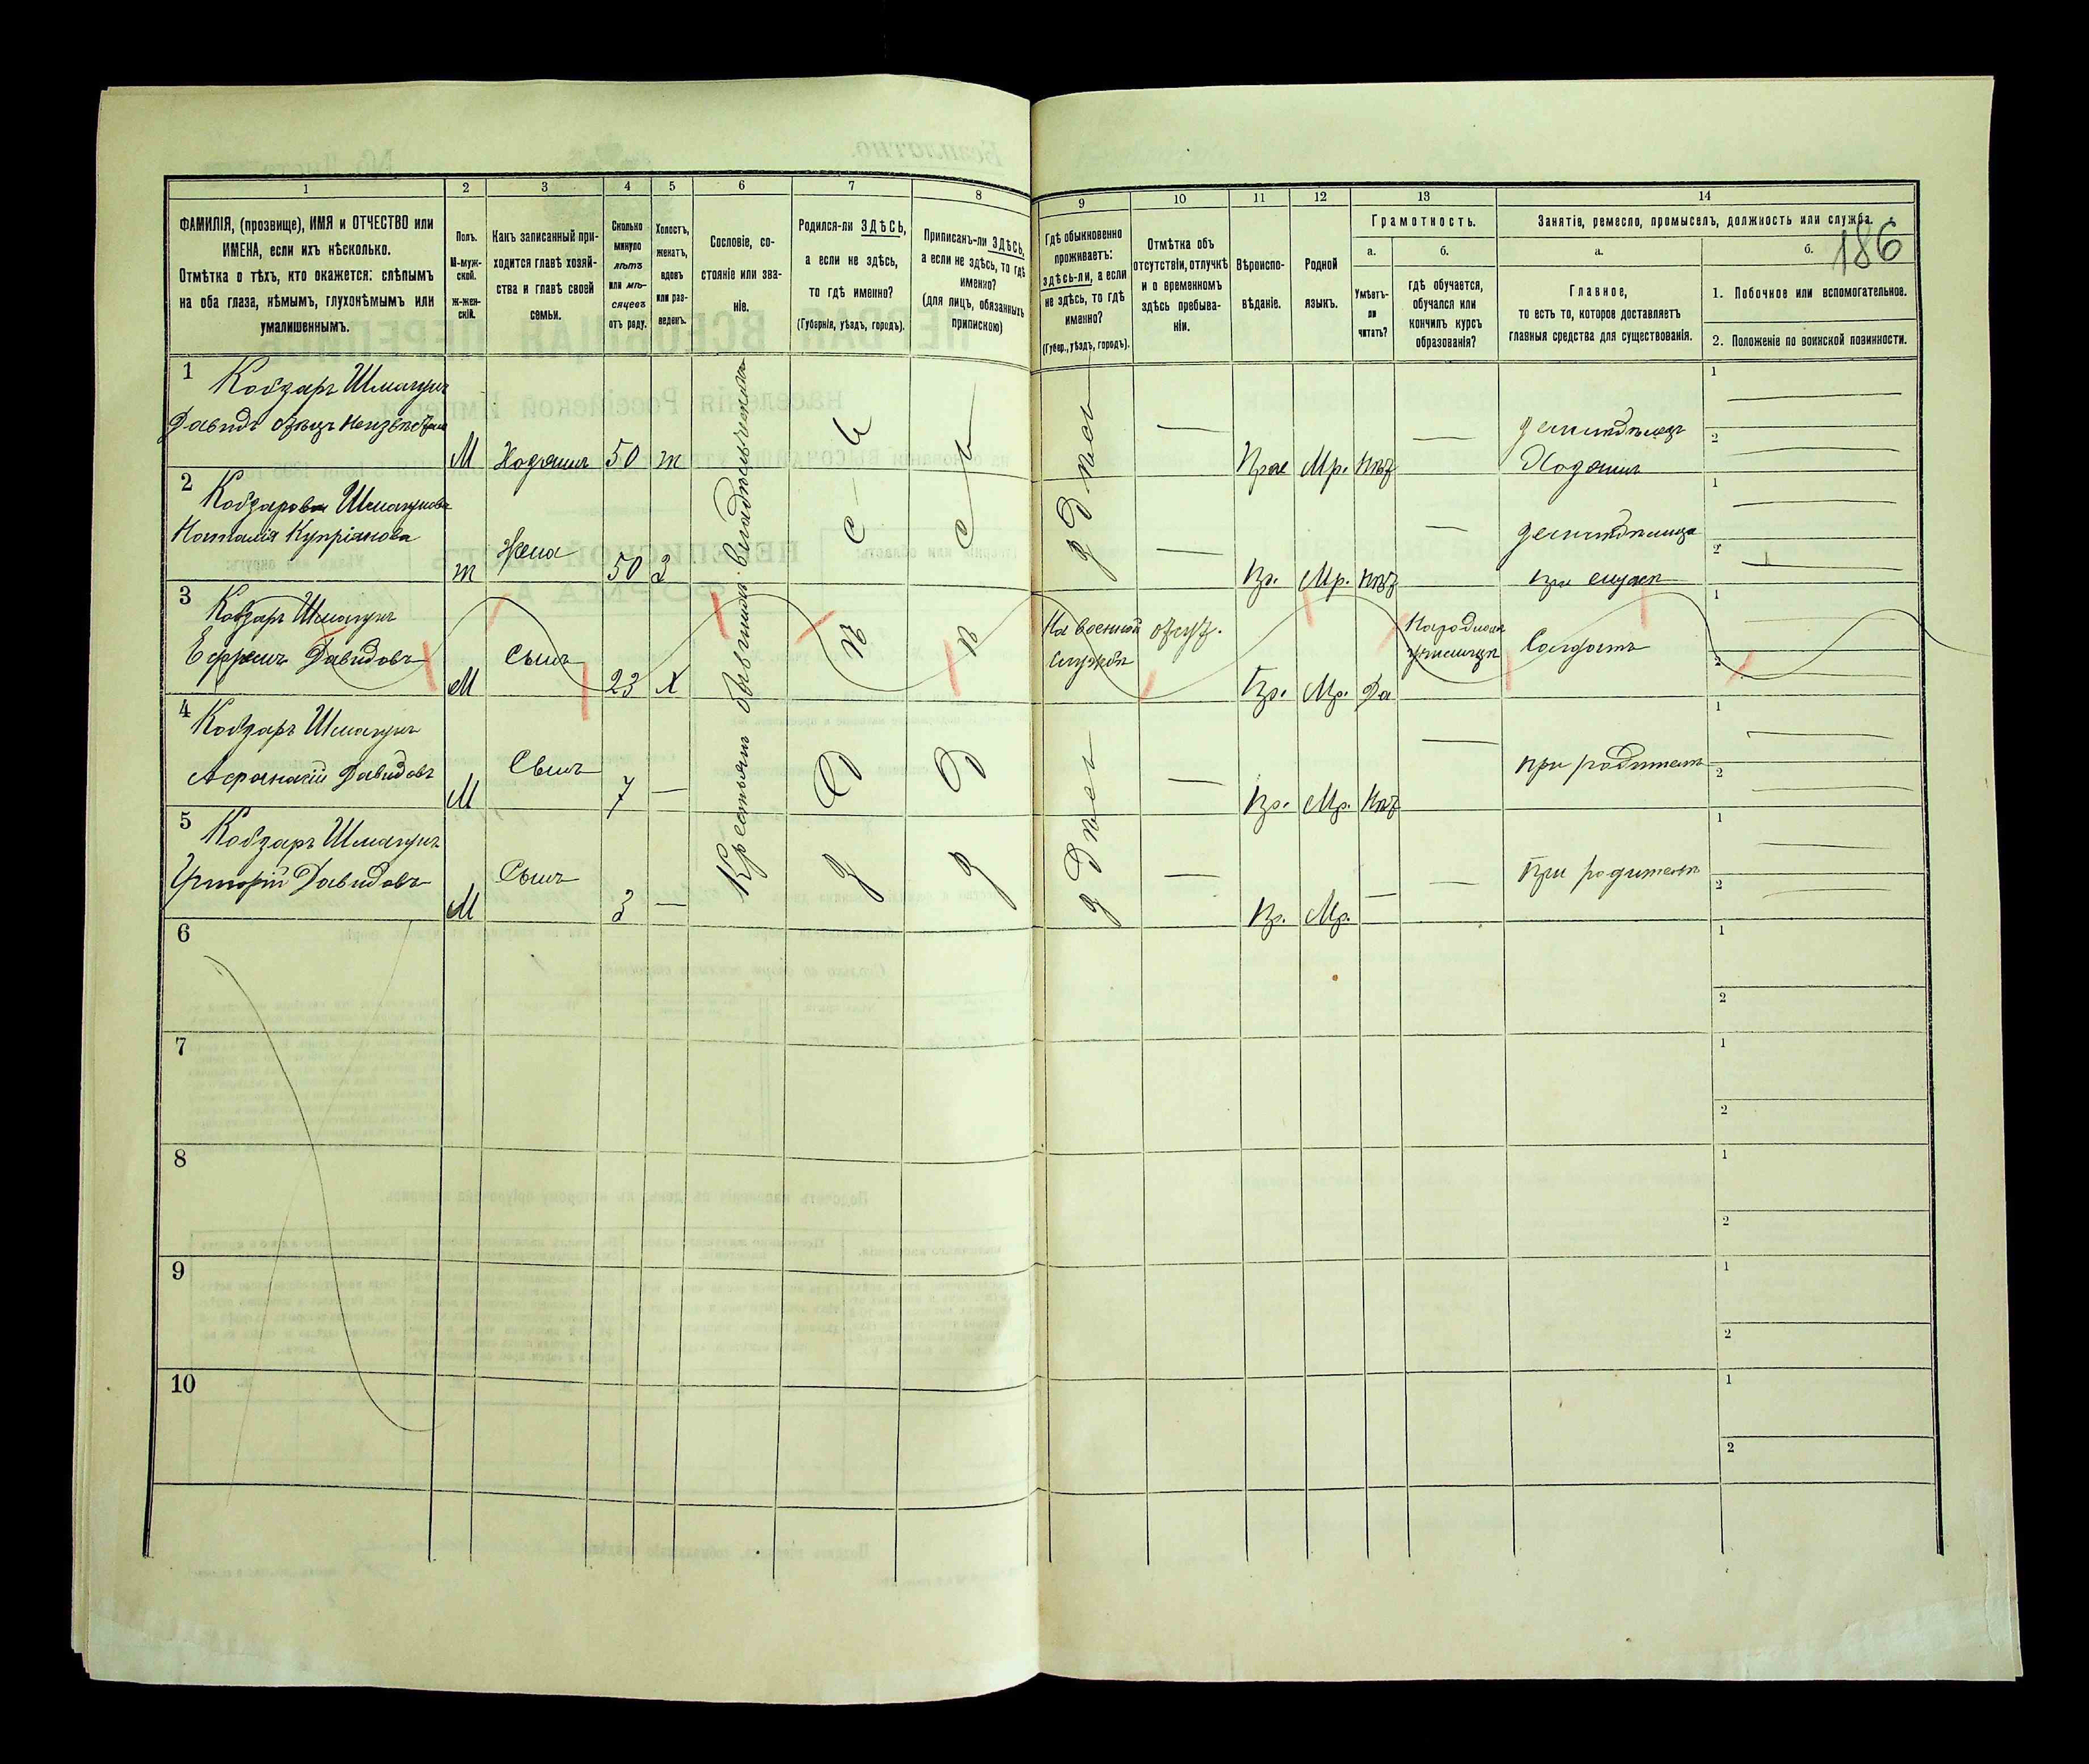 1 2 3 4 5 6 7 8 9 10 11 12 13 14
ФАМИЛІЯ, (прозвище), ИМЯ и ОТЧЕСТВО или
ИМЕНА, если ихъ нѣсколько.
Отмѣтка о тѣхъ, кто окажется: слѣпымъ
на оба глаза, нѣмымъ, глухонѣмымъ или
умалишеннымъ.
Полъ.
М-муж-
ской.
Ж-жен-
скій.
Какъ записанный при-
ходится главѣ хозяй-
ства и главѣ своей
семьи.
Сколько
минуло
лѣтъ
или мѣ-
сяцевъ
отъ роду.
Холостъ,
женатъ,
вдовъ
или раз-
веденъ.
Сословіе, со-
стояніе или зва-
ніе.
Родился-ли ЗДѢСЬ,
а если не здѣсь,
то гдѣ именно?
(Губернія, уѣздъ, городъ).
Приписанъ-ли ЗДѢСЬ,
а если не здѣсь, то гдѣ
именно?
(для лицъ, обязанныхъ
припискою)
Гдѣ обыкновенно
проживаетъ:
здѣсь-ли, а если
не здѣсь, то гдѣ
именно?
(Губер., уѣздъ, городъ).
Отмѣтка объ
отсутствіи, отлучкѣ
и о временномъ
здѣсь пребыва-
ніи.
Вѣроиспо-
вѣданіе.
Родной
языкъ.
Грамотность.
а.
Умѣетъ-
ли
читать?
б.
гдѣ обучается,
обучался или
кончилъ курсъ
образованія?
Занятіе, ремесло, промыселъ, должность или служба.
186
а.
Главное,
то есть то, которое доставляетъ
главныя средства для существованія.
б.
1. Побочное или вспомогательное.
2. Положеніе по воинской повинности.
1
Кобзарь Шмагунъ
Давидъ отецъ неизвѣстенъ
М Хозяинъ 50 ж
Крестьянъ бывшихъ владѣльческихъ
Здѣсь
Здѣсь
Здѣсь
—
Прав Мр. нѣт
—
земледѣлецъ
Хозяинъ
1
2
2
Кобзарова Шмагунова
Наталія Купріянова
ж Жена 50 З
—
Пр. Мр. нѣт
—
земледѣлица
при мужѣ
1
2
3
Кобзарь Шмагунъ
Ефремъ Давидовъ
М Сынъ 23 Х
На военной
службѣ
отсут.
Пр. Мр. Да
Народномъ
училищѣ
Солдатъ
1
2
4
Кобзарь Шмагунъ
Афанасій Давидовъ
М Сынъ 7 —
Здѣсь
—
Пр. Мр. Нѣт
—
при родителѣ
1
2
5
Кобзарь Шмагунъ
Григорій Давидовъ
М Сынъ 3 —
—
Пр. Мр. —
—
При родителѣ
1
2
6
1
2
7
1
2
8
1
2
9
1
2
10
1
2